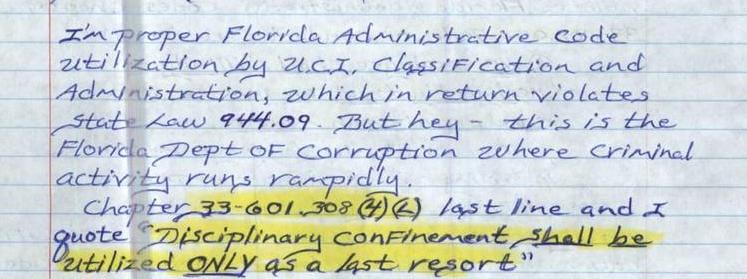 Im proper Florida Administrative code
utilization by U.C.I. Classification and
Administration, which in return violates
State Law 944.09. But hey - this is the
Florida Dept OF Corruption where Criminal
activity runs rampidly.
Chapter 33-601.308 (4)(L) last line and I
quote "Disciplinary Confinement shall be
utilized ONLY as a last resort"